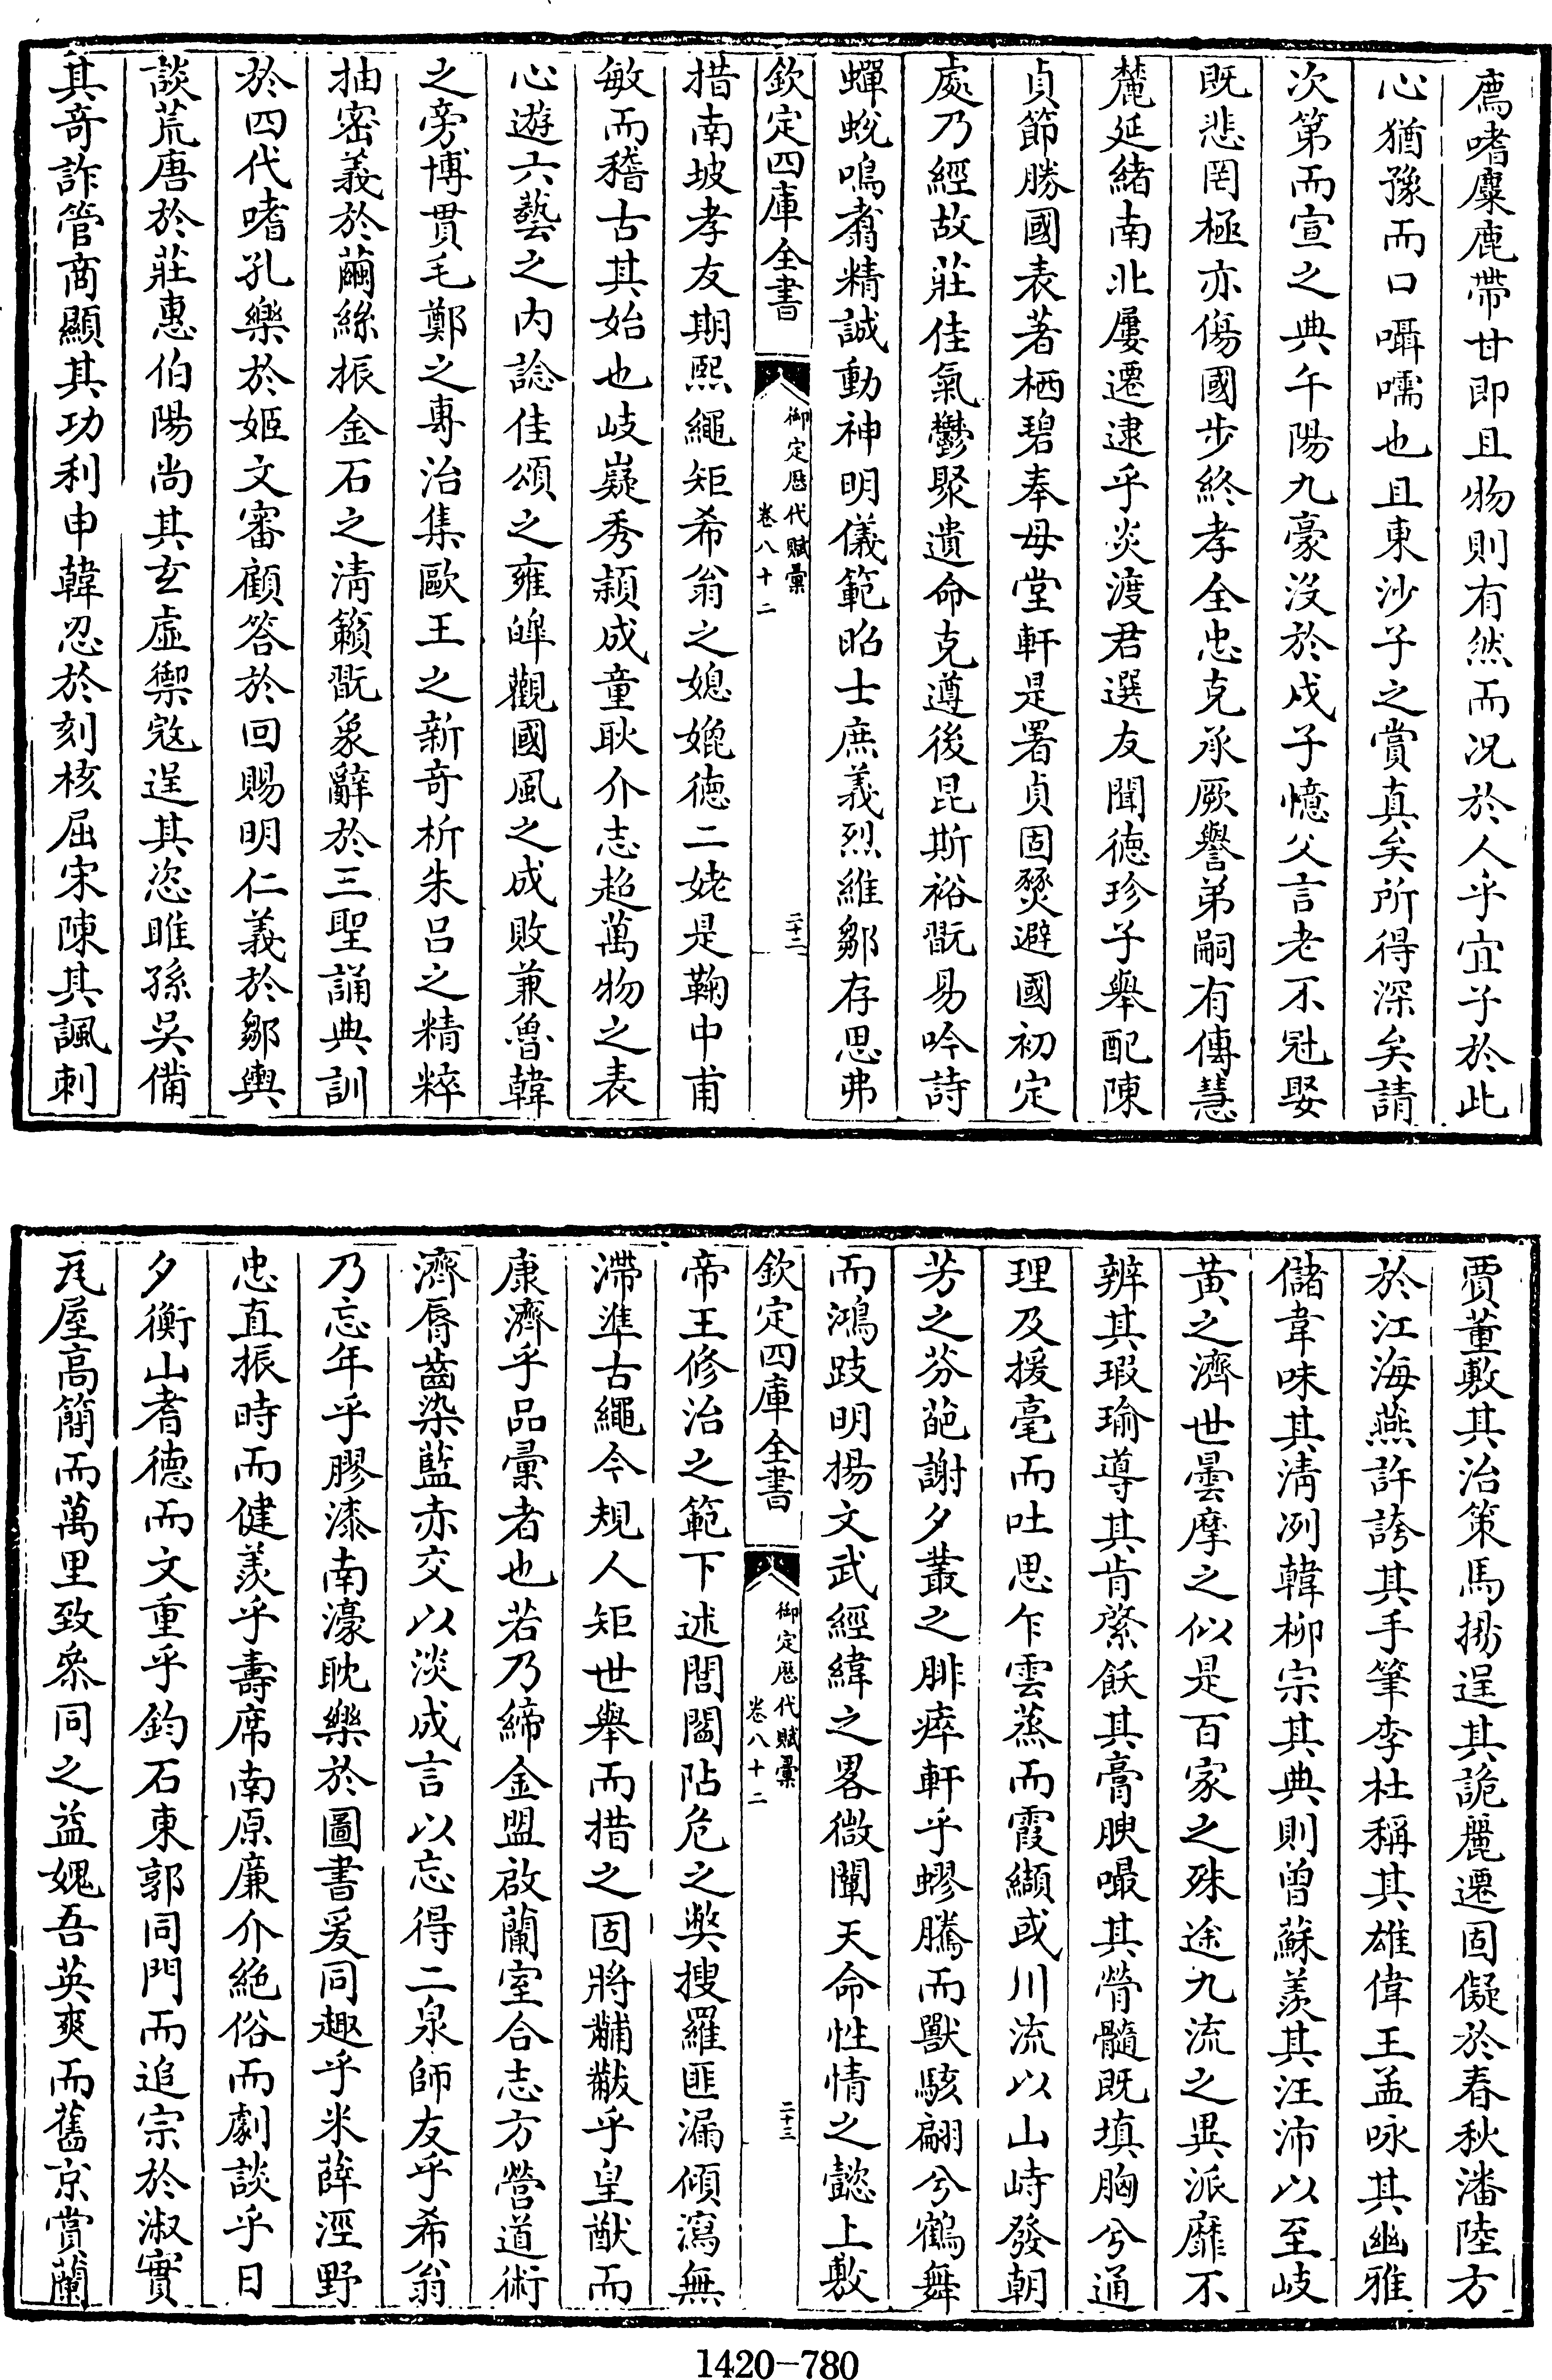 鴈嗜麋鹿帶甘即且物則有然而况於人乎宜子於此
心猶豫而口囁嚅也且東沙子之賞真矣所得深矣請
次第而宣之典午陽九豪沒於戍子憶父言老不冠娶
既悲罔極亦傷國步終孝全忠克承厥譽弟嗣有傳慧
麓延緒南北屢遷逮乎炎渡君選友聞德珍子舉配陳
貞節勝國表著栖碧奉母堂軒是署貞固燹避國初定
處乃經故莊佳氣鬱聚遺命克遵後昆斯裕翫易吟詩
蟬蛻鳴翥精誠動神明儀範昭士庶義烈維鄒存思弗
欽定四庫全書
御定歷代賦彙
卷八十二
二十二
措南坡孝友期熙繩矩希翁之媳媲德二姥是鞠中甫
敏而稽古其始也岐嶷秀穎成童耿介志超萬物之表
心遊六藝之內諗佳頌之雍皞觀國風之成敗兼魯韓
之旁博貫毛鄭之專治集歐王之新奇析朱呂之精粹
抽密義於繭絲振金石之清籟翫象辭於三聖誦典訓
於四代嗜孔樂於姬文審顧答於回賜明仁義於鄒輿
談荒唐於莊惠伯陽尚其玄虛禦寇逞其恣睢孫吳備
其奇詐管商顯其功利申韓忍於刻核屈宋陳其諷刺
賈董敷其治策馬揚逞其詭麗遷固儗於春秋潘陸方
於江海燕許誇其手筆李杜稱其雄偉王孟咏其幽雅
儲韋味其清冽韓柳宗其典則曾蘇羨其汪沛以至岐
黃之濟世曇摩之似是百家之殊途九流之異派靡不
辨其瑕瑜導其肯綮飫其膏腴嘬其膋髓既填胸兮通
理及援毫而吐思乍雲蒸而霞纈或川流以山峙發朝
芳之芬葩謝夕叢之腓瘁軒乎蟉騰而獸駭翩兮鶴舞
而鴻跂明揚文武經緯之畧微闡天命性情之懿上敷
欽定四庫全書
御定歷代賦彙
卷八十二
二十三
帝王修治之範下述閭閻阽危之獘搜羅匪漏傾瀉無
滯準古繩今規人矩世舉而措之固將黼黻乎皇猷而
康濟乎品彙者也若乃締金盟啟蘭室合志方營道術
濟脣齒染藍赤交以淡成言以忘得二泉師友乎希翁
乃忘年乎膠漆南濠耽樂於圖書爰同趣乎米薛涇野
忠直振時而健羨乎壽席南原廉介絶俗而劇談乎日
夕衡山耆德而文重乎鈞石東郭同門而追宗於淑實
瓦屋高簡而萬里致叅同之益媿吾英爽而舊京賞蘭
1420-780